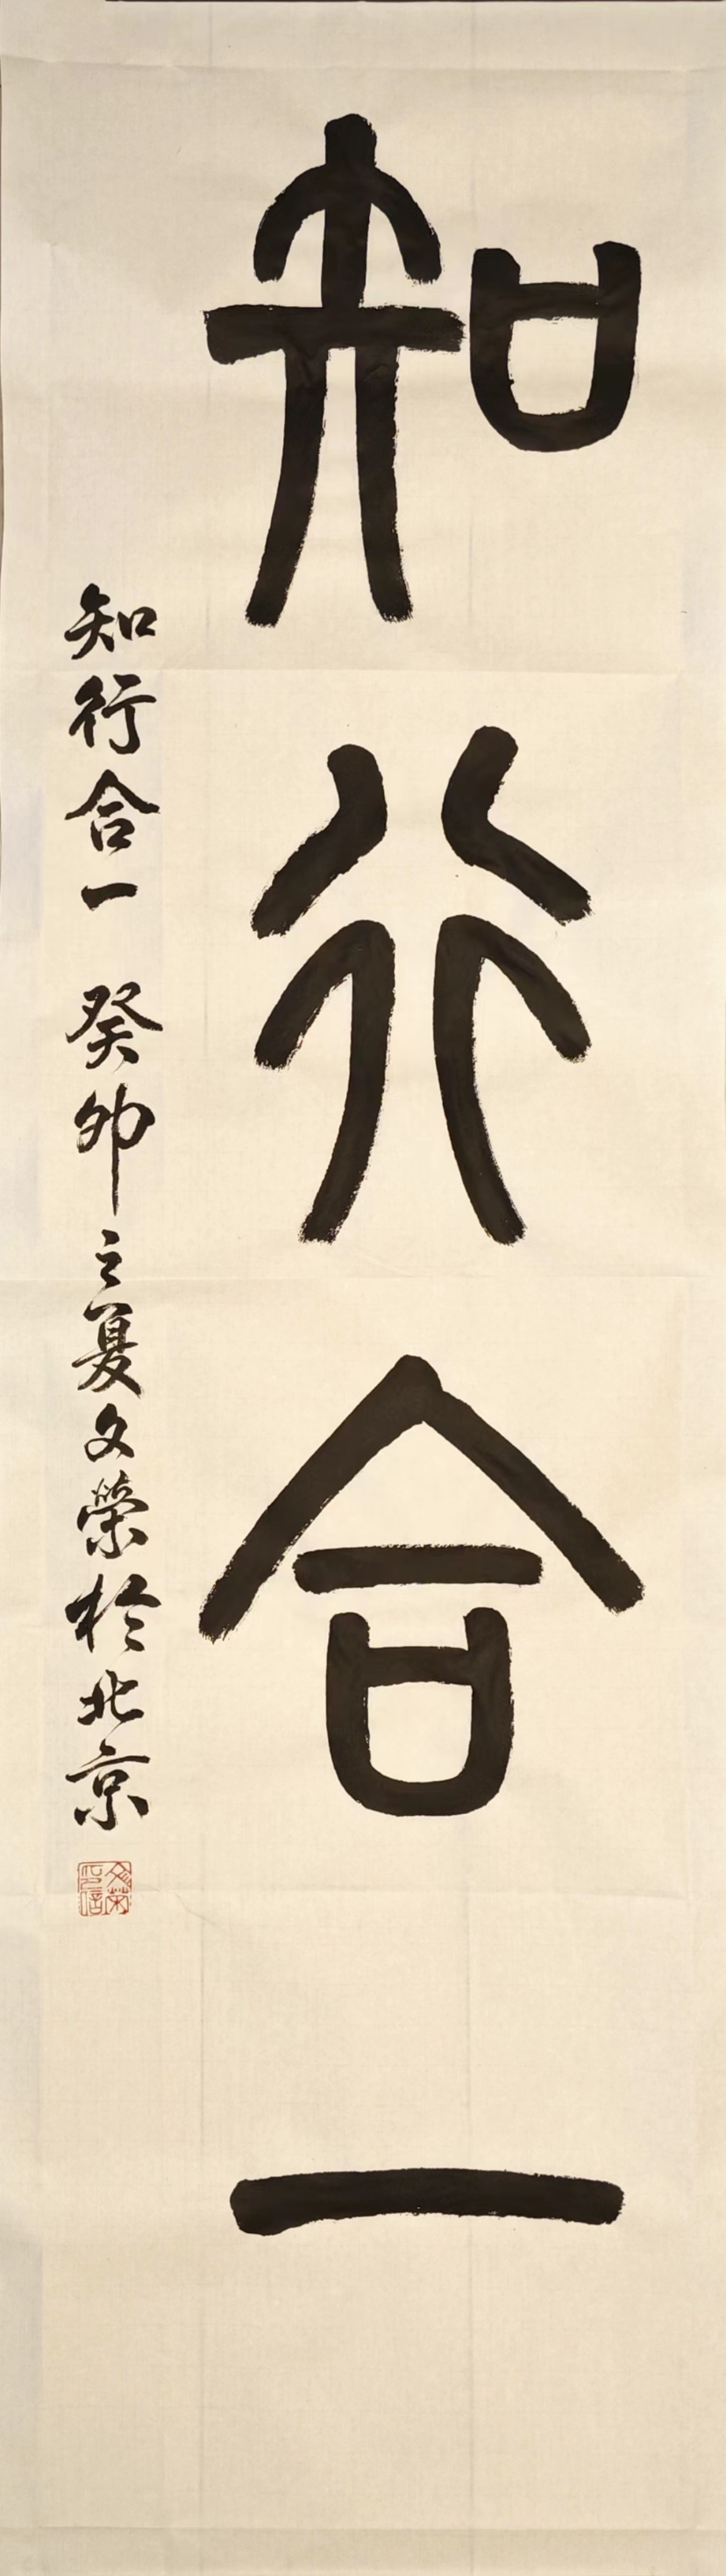 知行合一
知行合一 癸卯之夏文榮於北京
文荣印信